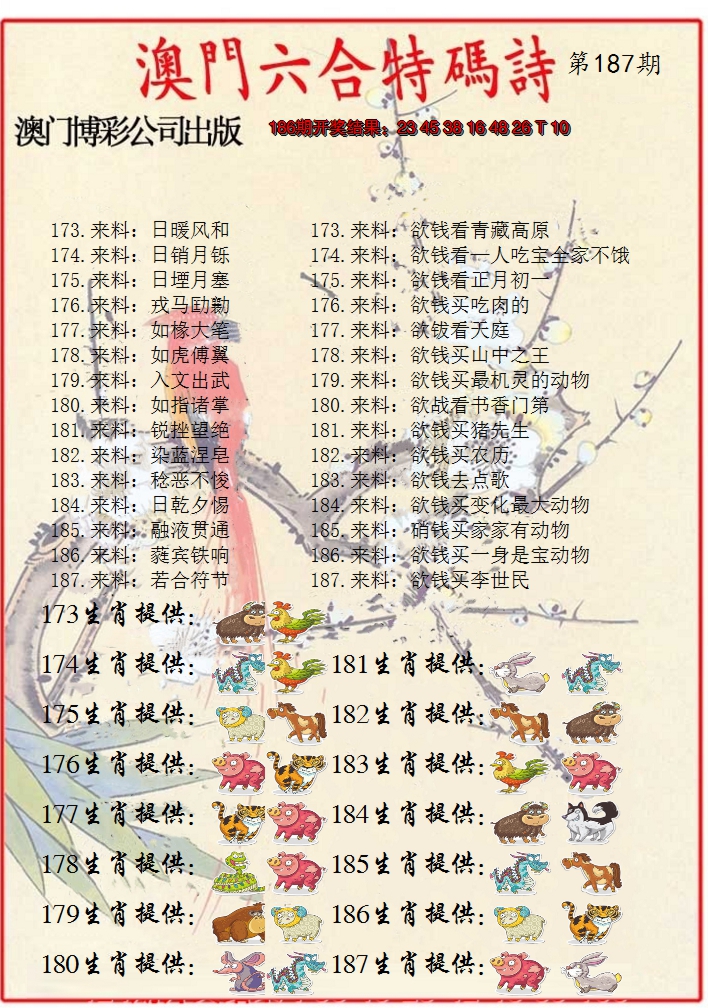 澳門六合特碼詩 第187期
澳门博彩公司出版 186期开奖结果：23 45 38 16 48 26 T 10
173.来料：日暖风和 173.来料：欲钱看青藏高原
174.来料：日销月铄 174.来料：欲钱看一人吃宝全家不饿
175.来料：日堙月塞 175.来料：欲钱看正月初一
176.来料：戎马劻勷 176.来料：欲钱买吃肉的
177.来料：如椽大笔 177.来料：欲钹看天庭
178.来料：如虎傅翼 178.来料：欲钱买山中之王
179.来料：入文出武 179.来料：欲钱买最机灵的动物
180.来料：如指诸掌 180.来料：欲战看书香门第
181.来料：锐挫望绝 181.来料：欲钱买猪先生
182.来料：染蓝涅皂 182.来料：欲钱买农历
183.来料：稔恶不悛 183.来料：欲钱去点歌
184.来料：日乾夕惕 184.来料：欲钱买变化最大动物
185.来料：融液贯通 185.来料：硝钱买家家有动物
186.来料：蕤宾铁响 186.来料：欲钱买一身是宝动物
187.来料：若合符节 187.来料：欲钱买李世民
173生肖提供：
174生肖提供： 181生肖提供：
175生肖提供： 182生肖提供：
176生肖提供： 183生肖提供：
177生肖提供： 184生肖提供：
178生肖提供： 185生肖提供：
179生肖提供： 186生肖提供：
180生肖提供： 187生肖提供：